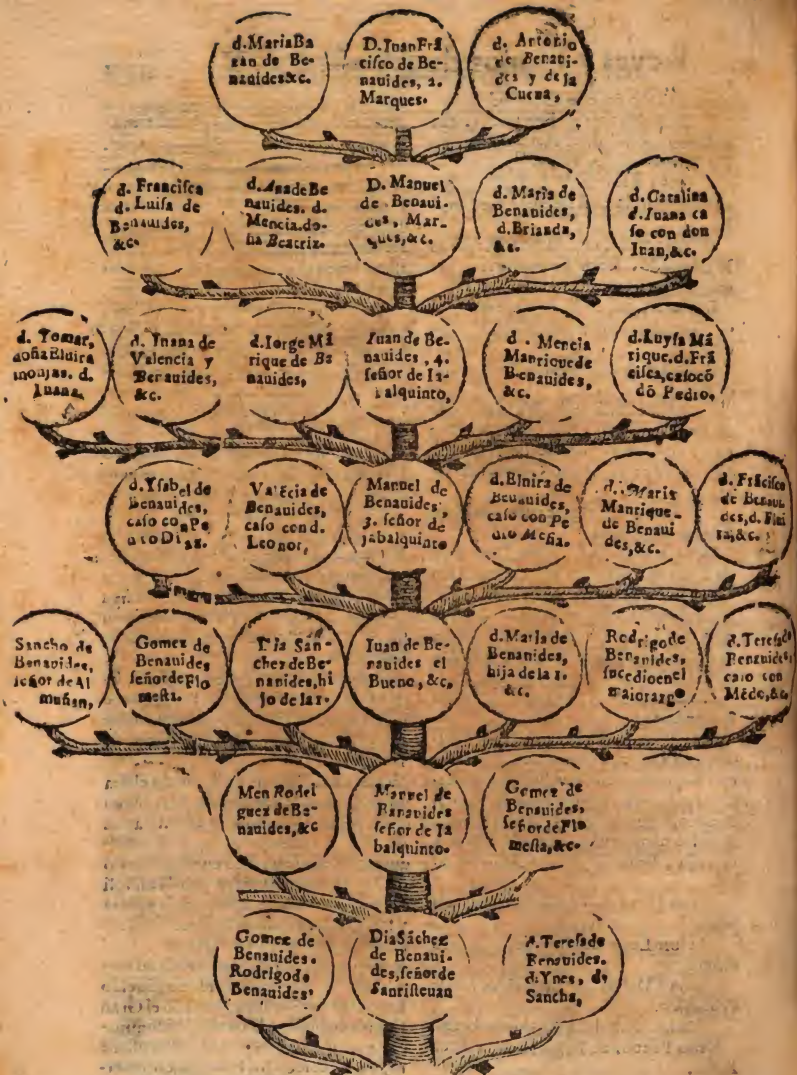 d. Maria Ba
zan de Be-
nauides &c.
D. Iuan Frã
cisco de Be-
nauides, 2.
Marques.
d. Antonio
de Benaui-
des y de la
Cueua,
d. Francisca
d. Luisa de
Benauides,
&c.
d. Ana de Be
nauides. d.
Mencia. do-
ña Beatriz.
D. Manuel
de Benaui-
des, Mar-
ques, &c.
d. Maria de
Benauides,
d. Brianda,
&c.
d. Catalina
d. Iuana ca
so con don
Iuan, &c.
d. Tomar,
doña Eluira
monjas. d.
Iuana,
d. Iuana de
Valencia y
Benauides,
&c.
d. Iorge Mã
rique de Be
nauides,
Iuan de Be-
nauides, 4.
señor de Ia-
balquinto,
d. Mencia
Manrique de
Benauides,
&c.
d. Luysa Mã
rique. d. Frã
cisca, casò cõ
dõ Pedro,
d. Ysabel de
Benauides,
caso con Pe
dro Diaz.
Valẽcia de
Benauides,
caso con d.
Leonor,
Manuel de
Benauides,
3. señor de
jabalquinto
d. Eluira de
Benauides,
caso con Pe
dro Mesia.
d. Maria
Manrique
de Benaui
des, &c.
d. Frãcisco
de Benaui
des, d. Elui
ra, &c.
Sancho de
Benauides,
señor de Al
muñan,
Gomez de
Benauides
señor de Flo
mesta.
Dia San-
chez de Be-
nauides, hi
jo de la 1.
Iuan de Be-
nauides el
Bueno, &c.
d. Maria de
Benauides,
hija de la 1.
&c.
Rodrigo de
Benauides,
sucedio en el
maiorazgo
d. Teresa de
Benauides,
caso con
Mẽdo, &c.
Men Rodri
guez de Be-
nauides, &c
Manuel de
Banauides
señor de Ia
balquinto.
Gomez de
Benauides,
señor de Flo
mesta, &c.
Gomez de
Benauides.
Rodrigo de
Benauides
Dia Sãchez
de Benaui-
des, señor de
Santisteuan
d. Teresa de
Benauides.
d. Ynes, d.
Sancha,